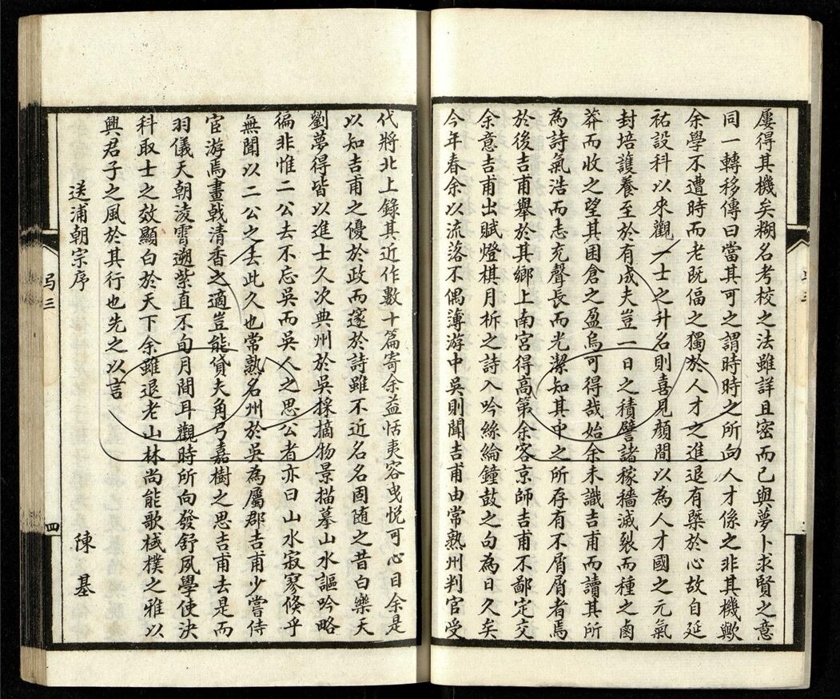 屢得其機矣糊名考校之法雖詳且密而已與夢卜求賢之意
同一轉移傳曰當其可之謂時時之所向人才係之非其機歟
余學不遭時而老既偪之獨於人才之進退有槩於心故自延
祐設科以來觀一士之升名則喜見顏間以為人才國之元氣
封培護養至於有成夫豈一日之積譬諸稼穡滅裂而種之鹵
莽而收之望其囷倉之盈烏可得哉始余未識吉甫而讀其所
為詩氣浩而志充聲長而光潔知其中之所存有不屑屑者焉
於後吉甫舉於其鄉上南宮得高第余客京師吉甫不鄙定交
余意吉甫出賦燈棋月柝之詩入吟絲綸鐘鼓之句為日久矣
今年春余以流落不偶薄游中吳則聞吉甫由常熟州判官受
代將北上錄其近作數十篇寄余益恬夷容曳悅可心目余是
以知吉甫之優於政而邃於詩雖不近名名固隨之昔白樂天
劉夢得皆以進士久次典州於吳採摘物景描摹山水謳吟略
徧非惟二公去不忘吳而吳人之思公者亦曰山水寂寥倏乎
無聞以二公之去此久也常熟名州於吳為屬郡吉甫少嘗侍
宦游焉畫戟清香之適豈能貸夫角弓嘉樹之思吉甫去是而
羽儀天朝淩霄遡紫直不旬月間耳觀時所向發舒夙學使決
科取士之效顯白於天下余雖退老山林尚能歌棫樸之雅以
興君子之風於其行也先之以言
送浦朝宗序
陳基
四